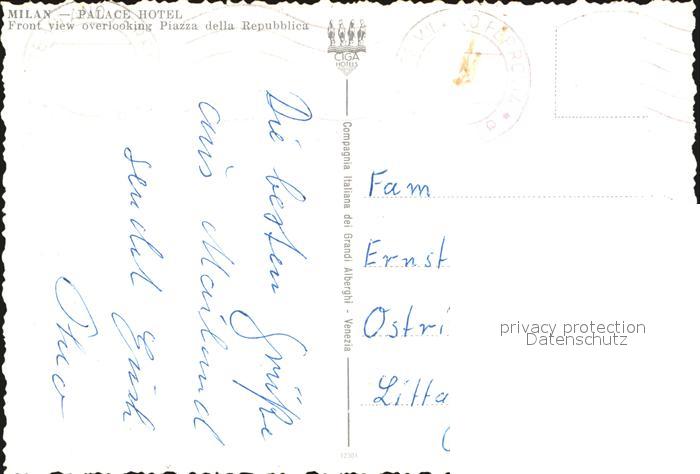 MILAN — PALACE HOTEL
Front view overlooking Piazza della Repubblica
CIGA
HOTELS
Compagnia Italiana dei Grandi Alberghi - Venezia
Die besten Grüße
aus Mailand
sendet Euch
Fam
Ernst
Ostri
Litta
privacy protection
Datenschutz
12301